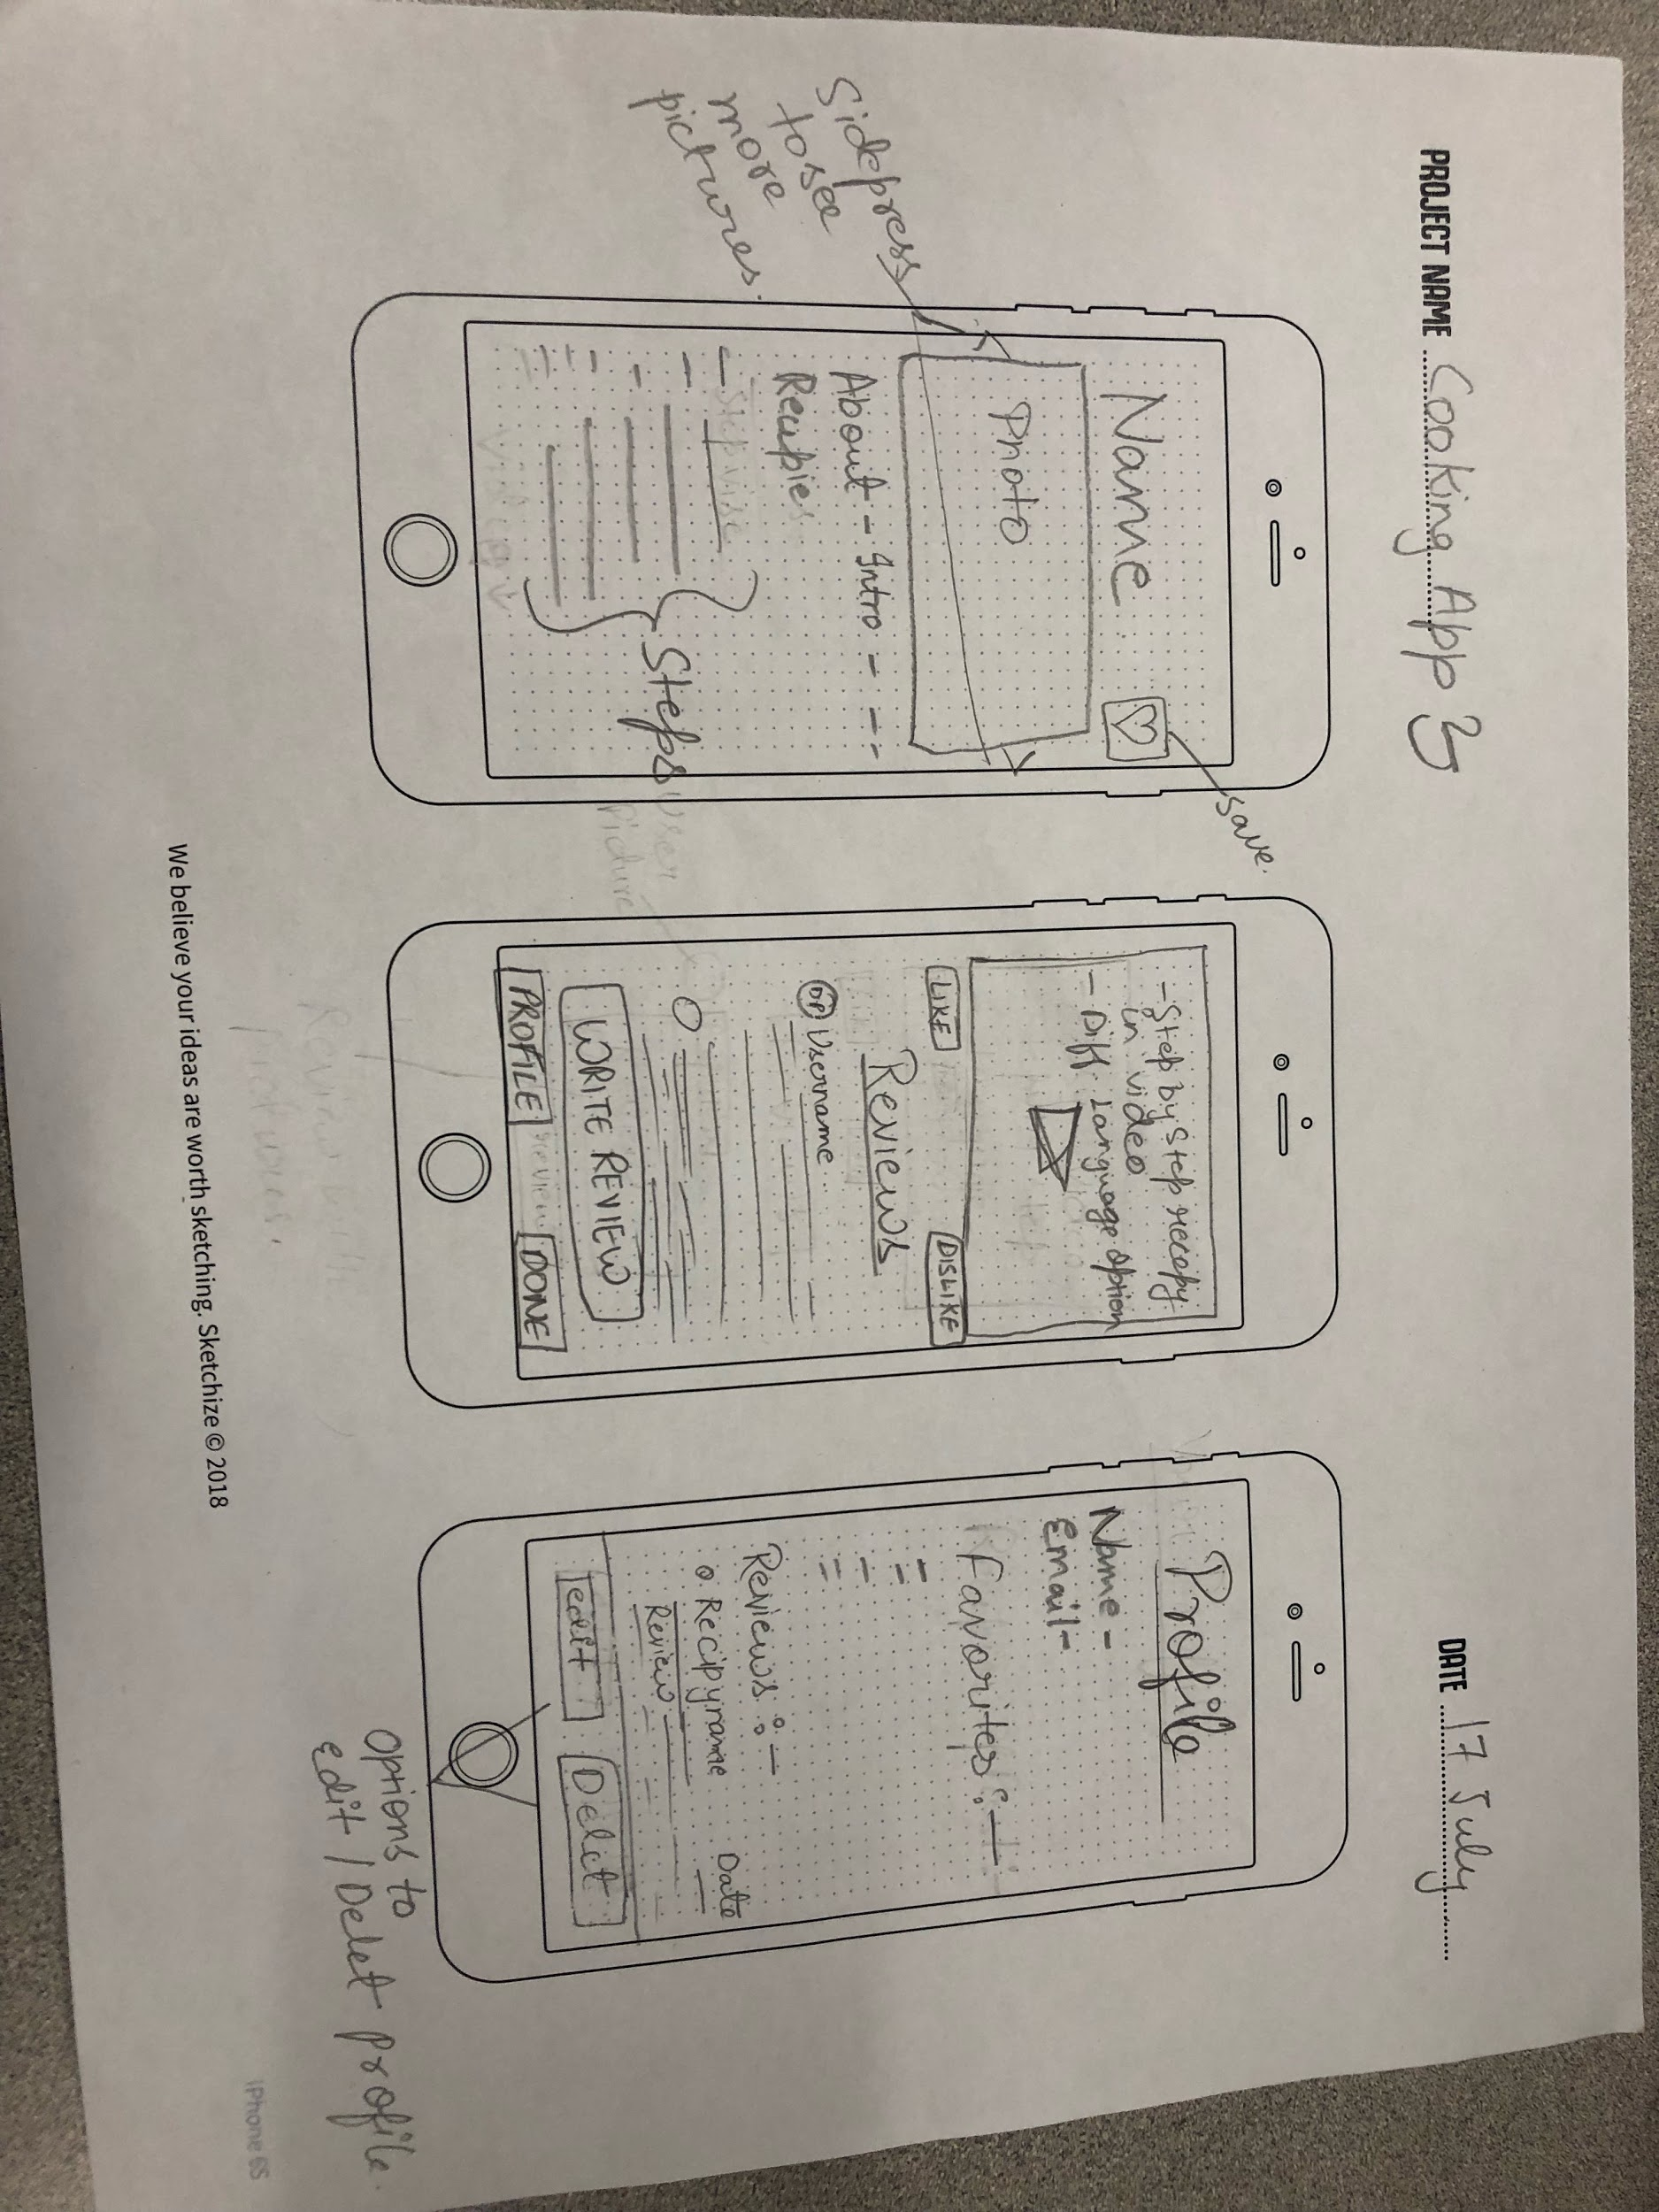 PROJECT NAME Cooking App 3
DATE 17 July
Sidepress
to see
more
pictures.
save.
Name
Photo
About - Intro - - -
Recipies
Stepwise
Steps
User
Picture
- Step by step recepy
in video
- Diff. language option
LIKE
DISLIKE
Reviews
DP Username
WRITE REVIEW
PROFILE
DONE
Profile
Name -
Email -
Favorites :-
Reviews :-
Recipyname
Date
Review
edit
Delet
Options to
Edit / Delet profile.
We believe your ideas are worth sketching. Sketchize © 2018
iPhone 6S